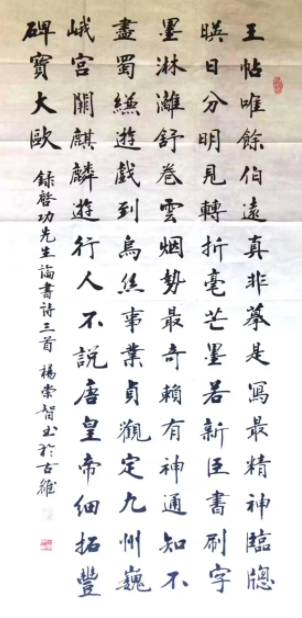 王帖唯餘伯遠真非摹是寫最精神臨牕
暎日分明見轉折毫芒墨若新臣書刷字
墨淋灕舒卷雲烟勢最奇賴有神通知不
盡蜀縑遊戲到烏絲事業貞觀定九州巍
峨宮闕麒麟遊行人不說唐皇帝細拓豐
碑寶大歐
録啓功先生論書詩三首 楊崇智书於古雒